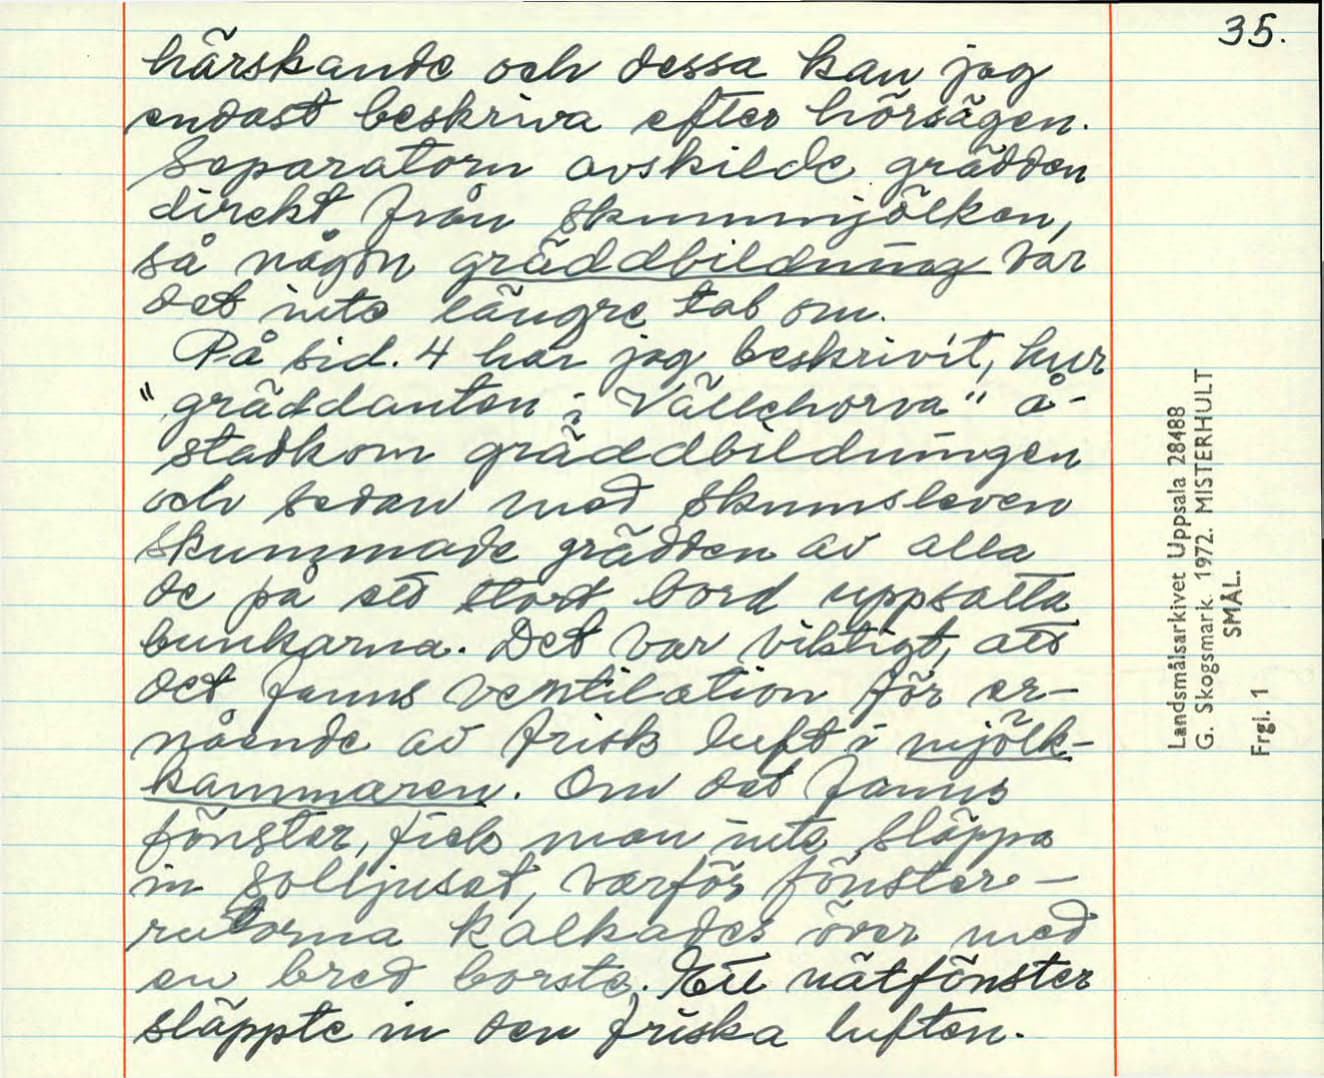 35.
härskande och dessa kan jag
endast beskriva efter hörsägen.
Separatorn avskilde grädden
direkt från skummjölken,
så någon gräddbildning var
det inte längre tal om.
På sid. 4 har jag beskrivit, hur
"gräddanten i Vällehorva" å-
stadkom gräddbildningen
och sedan med skumsleven
skummade grädden av alla
de på ett stort bord uppsatta
bunkarna. Det var viktigt, att
det fanns ventilation för er-
nående av frisk luft i mjölk-
kammaren. Om det fanns
fönster, fick man inte släppa
in solljuset, varför fönster-
rutorna kalkades över med
en bred borste. Ett nätfönster
släppte in den friska luften.
Landsmålsarkivet Uppsala 28488
G. Skogsmark. 1972. MISTERHULT
SMÅL.
Frgl. 1